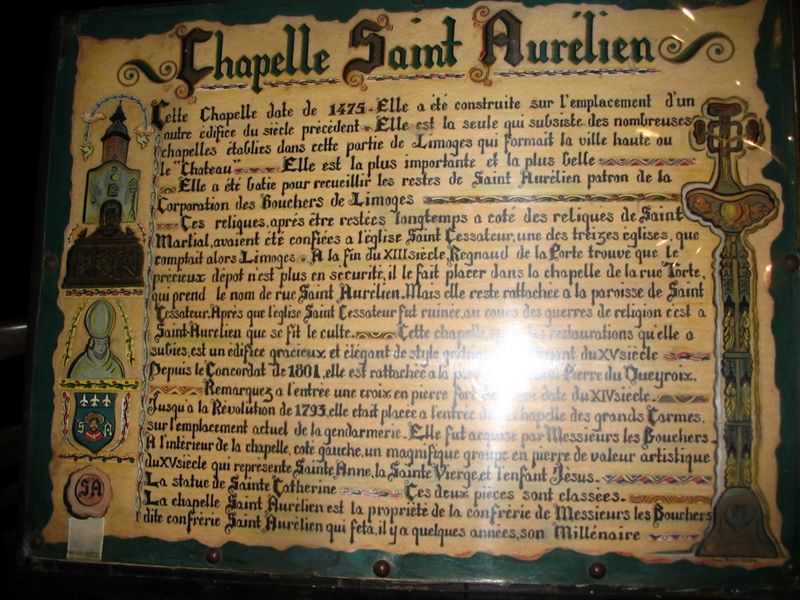 Chapelle Saint Aurélien
Cette Chapelle date de 1475. Elle a été construite sur l'emplacement d'un
autre édifice du siècle précédent. Elle est la seule qui subsiste des nombreuses
chapelles établies dans cette partie de Limoges qui formait la ville haute ou
le "Chateau" Elle est la plus importante et la plus belle
Elle a été batie pour recueillir les restes de Saint Aurélien patron de la
Corporation des Bouchers de Limoges
Ces reliques, après être restées longtemps a coté des reliques de Saint
Martial, avaient été confiées a l'église Saint Cessateur, une des treizes églises, que
comptait alors Limoges. A la fin du XIII siècle, Regnaud de la Porte trouve que le
précieux dépot n'est plus en securité, il le fait placer dans la chapelle de la rue Torte,
qui prend le nom de rue Saint Aurélien. Mais elle reste rattachée a la paroisse de Saint
Cessateur. Après que l'église Saint Cessateur fut ruinée, au cours des guerres de religion c'est a
Saint-Aurelien que se fit le culte. Cette chapelle restaurations qu'elle a
subies, est un édifice gracieux et élégant de style du XV siècle
Depuis le Concordat de 1801, elle est rattachée a la Pierre du Queyroix.
Remarquez a l'entrée une croix en pierre date du XIV siècle.
Jusqu'a la Révolution de 1793, elle était placée a l'entrée chapelle des grands Carmes,
sur l'emplacement actuel de la gendarmerie. Elle fut acquise par Messieurs les Bouchers.
A l'intérieur de la chapelle, coté gauche, un magnifique groupe en pierre de valeur artistique
du XV siècle qui represente Sainte Anne, la Sainte Vierge, et l'enfant Jésus.
La statue de Sainte Catherine Ces deux pièces sont classées.
La chapelle Saint Aurélien est la propriété de la confrérie de Messieurs les Bouchers
dite confrérie Saint Aurélien qui feta, il y a quelques années, son Millénaire
S A
SA